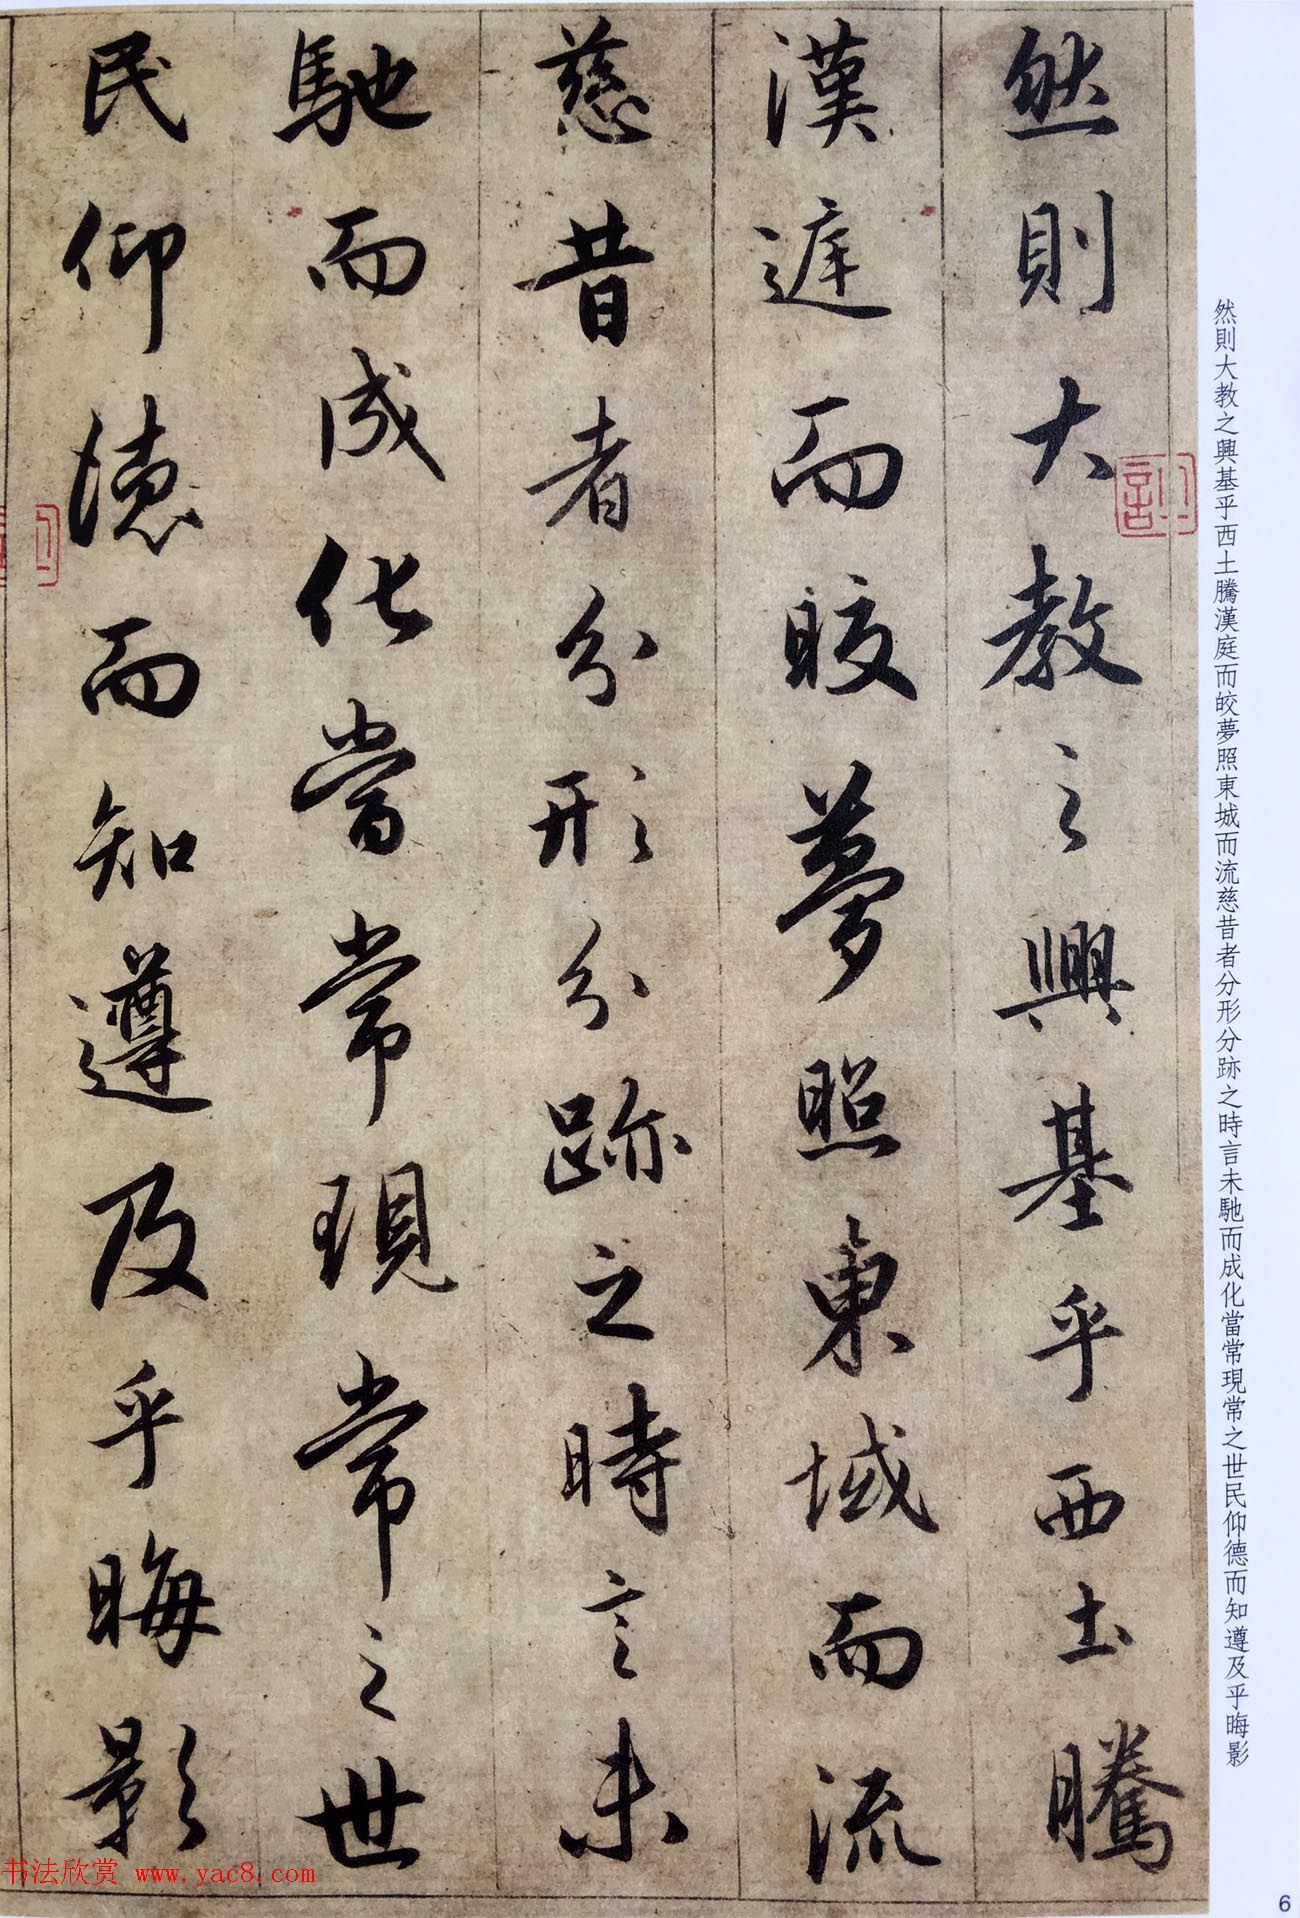 然則大教之興基乎西土騰
漢庭而皎夢照東域而流
慈昔者分形分跡之時言未
馳而成化當常現常之世
民仰德而知遵及乎晦影
然則大教之興基乎西土騰漢庭而皎夢照東城而流慈昔者分形分跡之時言未馳而成化當常現常之世民仰德而知遵及乎晦影
书法欣赏 www.yac8.com
6